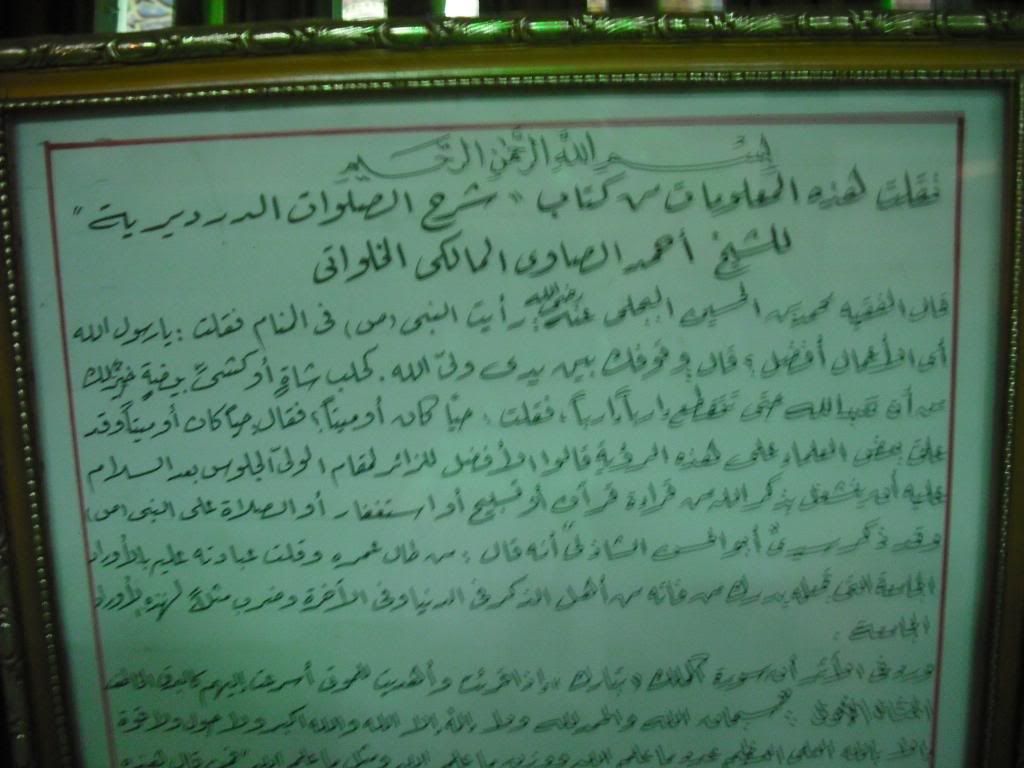 بسم الله الرحمن الرحيم
نقلت هذه المعلومات من كتاب " شرح الصلوات الدرديرية "
للشيخ أحمد الصاوى المالكى الخلواتى
قال الفقيه محمد بن الحسين البجلى رضى الله عنه: رأيت النبى (ص) فى المنام فقلت : يارسول الله
أى الأعمال أفضل ؟ قال وقوفك بين يدى ولىّ الله . كحلب شاةٍ أو كشىّ بيضةٍ خيرٌ لك
من أن تعبد الله حتى تتقطع إرباً إرباً، فقلت : حيّاً كان أو ميتاً؟ فقال حيّاً كان أو ميتاً وقد
علق بعض العلماء على هذه الرؤية قالوا الأفضل للزائر لمقام الولىّ الجلوس بعد السلام
عليه أن ينشغل بذكر الله من قراءة قرآن أو تسبيح أو استغفار أو الصلاة على النبى (ص)
وقد ذكر سيدىّ أبو الحسن الشاذلىّ أنه قال : من طال عمره وقلت عبادته عليه بالأوراد
الجامعة التى تجعله يدرك من فاته من أهل الذكر فى الدنيا وفى الآخرة وضرب مثلاً لهذه الأوراد
الجامعة :
ورد فى الأثر أن سورة الملك "تبارك" إذا قرئت وأهديت للموتى أسرعت إليهم كالبرق الخاطف
المثال الأول : سبحان الله والحمد لله ولا إله إلا الله والله أكبر ولا حول ولا قوة
إلا بالله العلى العظيم عدد ما علم الله وزنة ما علم الله وملء ما علم الله